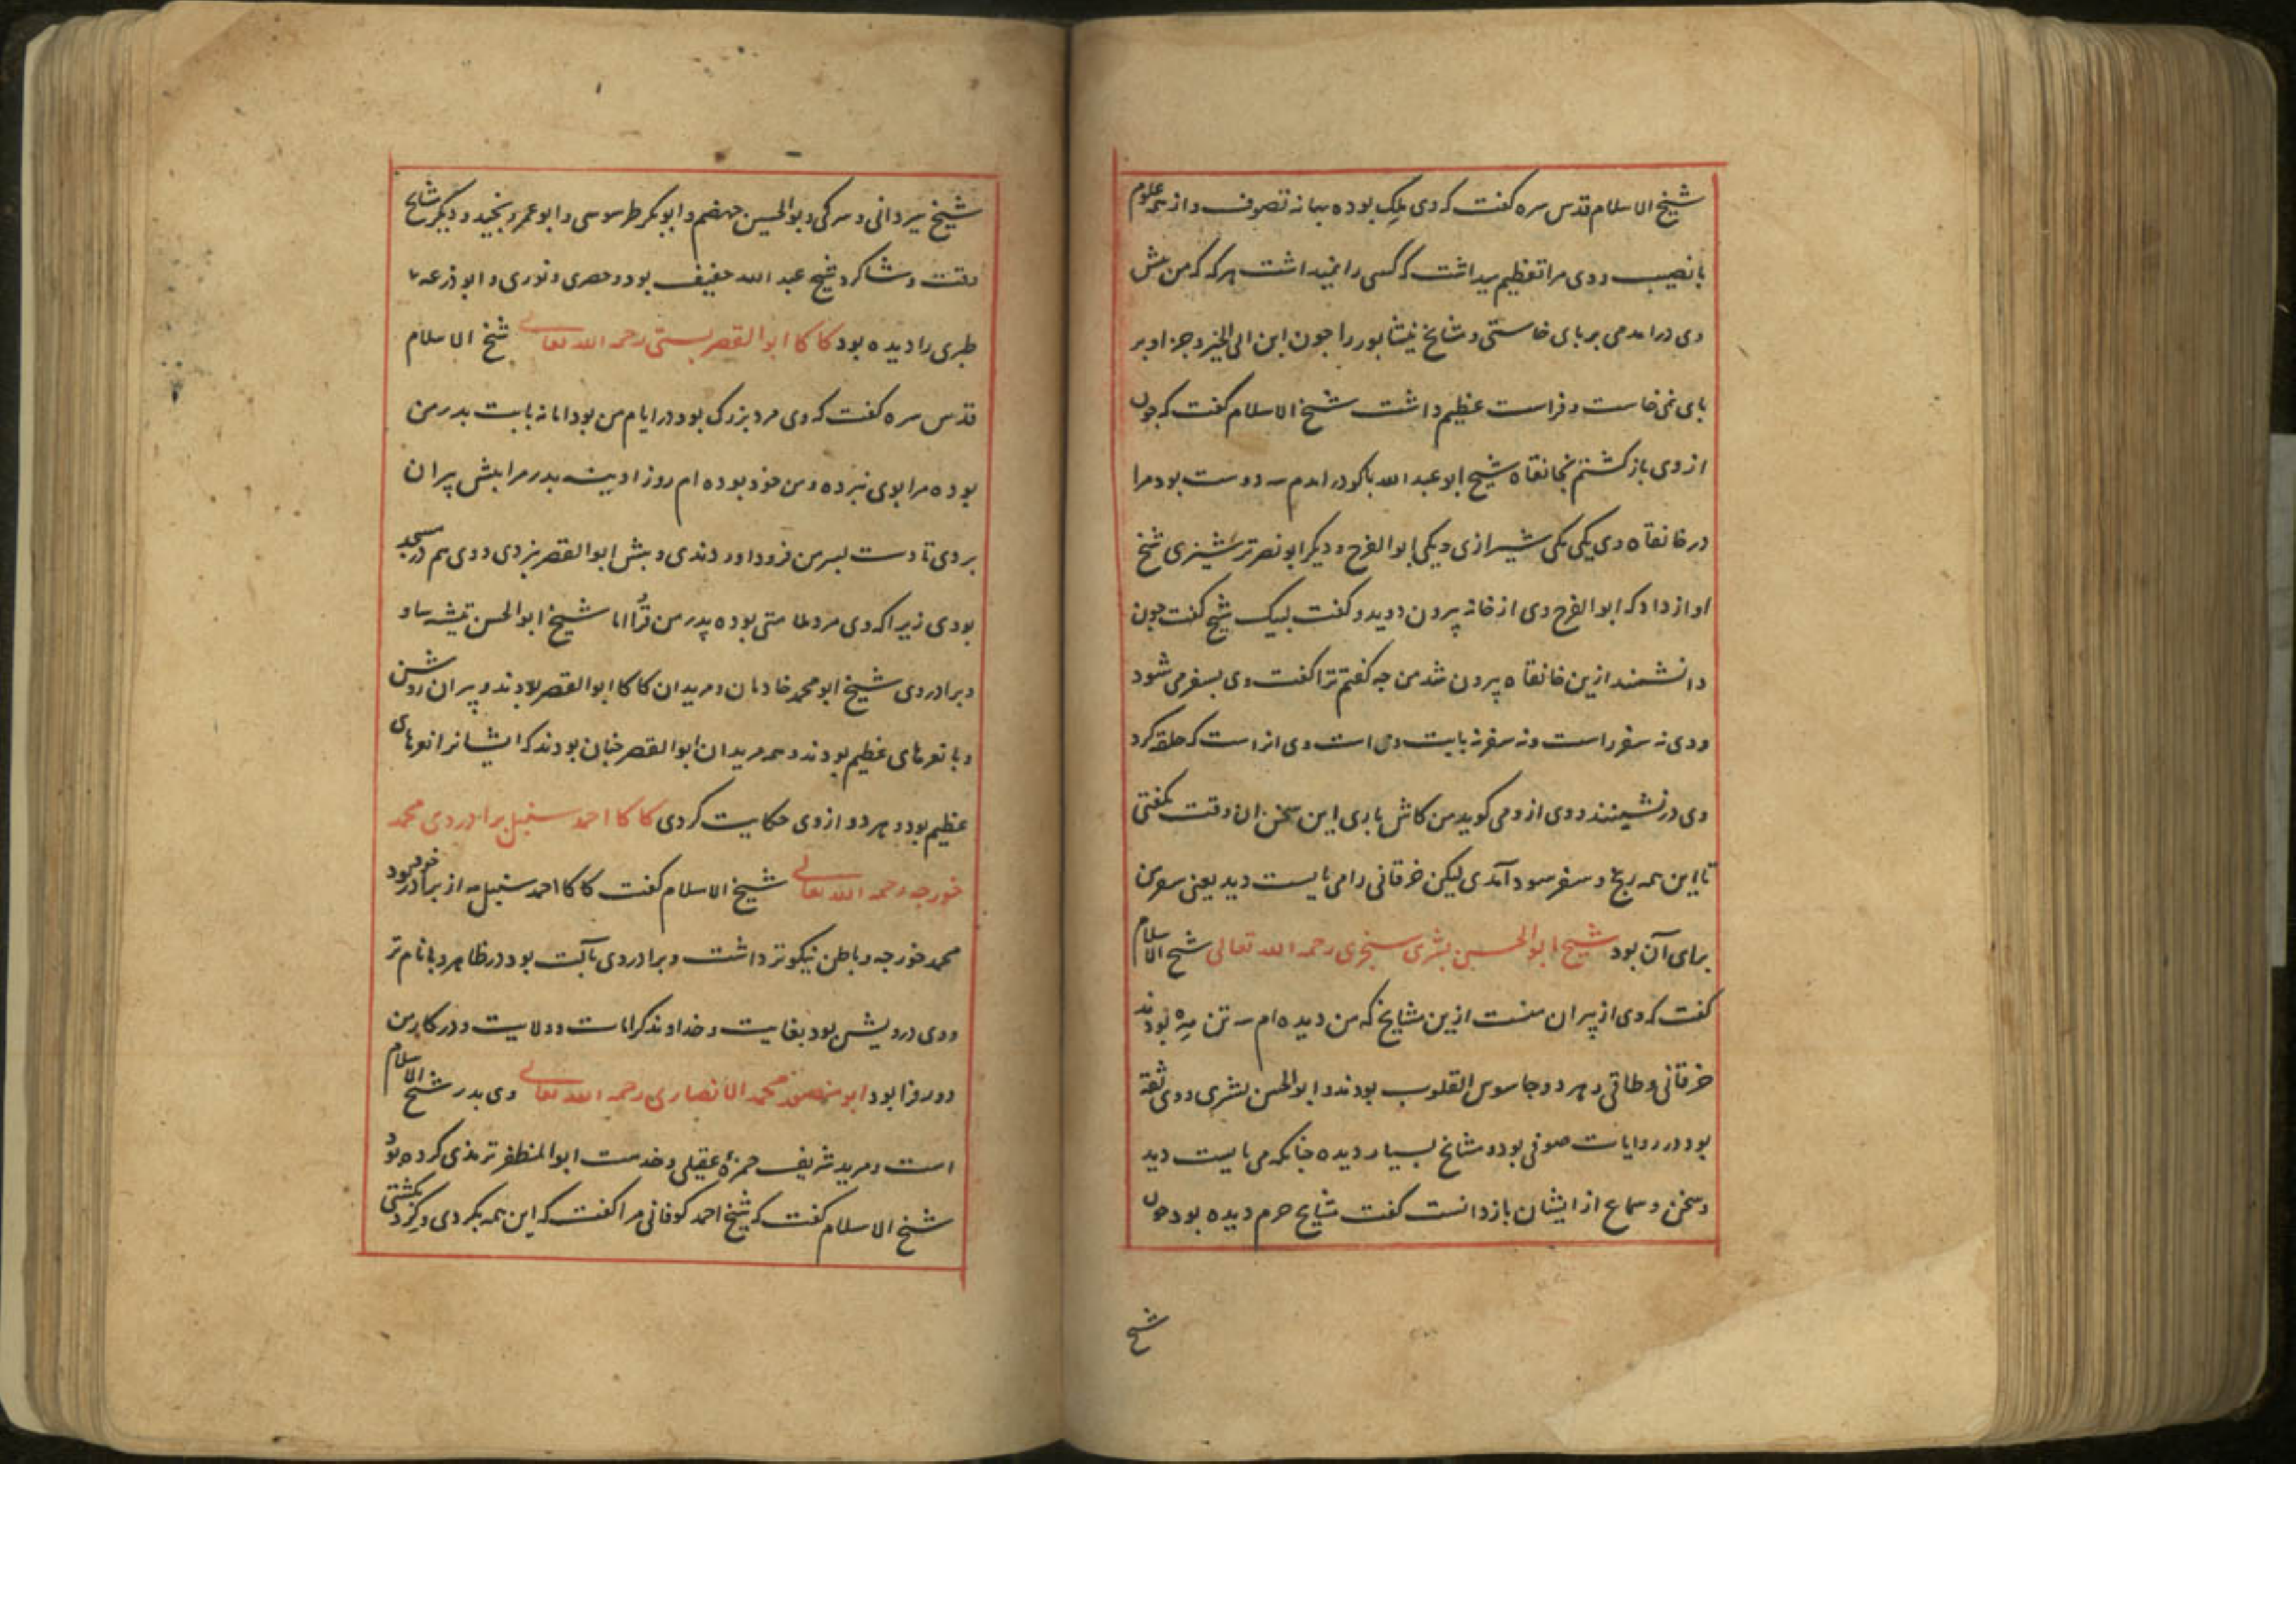 شیخ الاسلام قدس سره کفت که وی ملک بوده ببانه تصوف و از همه علوم
با نصیب و وی مرا تعظیم میداشت که کسی را نمیداشت هر که که من پیش
وی درامدمی بر بای خاستی و مشایخ نیشابور را جون ابن ابی الخیر و جز او بر
بای نمی خاست و فراست عظیم داشت شیخ الاسلام کفت که جون
از وی باز کشتم بخانقاه شیخ ابو عبد الله باکو درامدم سه دوست بود مرا
در خانقاه وی یکی مکی شیرازی و یکی ابو الفرح و دیکر ابو نصر ترشیزی شیخ
اواز داد که ابو الفرح وی از خانه بیرون دوید و کفت لبیک شیخ کفت جون
دانشمند ازین خانقاه بیرون شد من جه کفتم ترا کفت وی بسفر می شود
و وی نه سفر راست و نه سفر نه بابت وی است وی از است که حلقه کرد
وی در نشینند و وی از و می کوید من کاش باری این سخن ان وقت بکفتی
تا این همه رنج و سفر سود آمدی لیکن خرقانی را می بایست دید یعنی سفر من
برای آن بود شیخ ابو الحسین بشری سجزی رحمه الله تعالی شیخ الاسلام
کفت که وی از پیران منست ازین مشایخ که من دیده ام سه تن مه بودند
خرقانی و طاقی و هر دو جاسوس القلوب بودند و ابو الحسن بشری و وی ثقه
بود در روایات صوفی بود و مشایخ بسیار دیده جنانکه می بایست دید
و سخن و سماع از ایشان باز دانست کفت مشایخ حرم دیده بود جون
شیخ
شیخ سیردانی و سرکی و بوالحسین جهضم و ابوبکر طرسوسی و ابو عمرو نجید و دیکر مشایخ
وقت و شاکرد شیخ عبد الله خفیف بود و حصری و نوری و ابو ذرعه
طبری را دیده بود کاکا ابو القصر بستی رحمه الله تعالی شیخ الاسلام
قدس سره کفت که وی مرد بزرک بود در ایام من بود اما نه بابت بدر من
بوده مرا بوی نبرده و من خود بوده ام روز ادینه بدر مرا بیش پیران
بردی تا دست بسر من فرود اوردندی و بیش ابو القصر نبردی و وی هم در مسجد
بودی زیرا که وی مرد ملامتی بوده پدر من قرا اما شیخ ابو الحسن تیشه ساو
و برادر وی شیخ ابو محمد خادمان و مریدان کاکا ابو القصر بودند و پیران روشن
و با نعرهای عظیم بودند و همه مریدان ابو القصر جنان بودند که ایشانرا نعرهای
عظیم بود و هر دو از وی حکایت کردی کاکا احمد سنبل برادر وی محمد
خورجه رحمه الله تعالی شیخ الاسلام کفت کاکا احمد سنبل مه از برادر خود بود
محمد خورجه و باطن نیکوتر داشت و برادر وی باکت بود در ظاهر و بانام تر
و وی درویش بود بغایت و خداوند کرامات و ولایت و در کار من
دور فرا بود ابو منصور محمد الانصاری رحمه الله تعالی وی بدر شیخ الاسلام
است و مرید شریف حمزهٔ عقیلی و خدمت ابو المظفر ترمذی کرده بود
شیخ الاسلام کفت که شیخ احمد کوفانی مرا کفت که این همه بکردی و کرد بکشتی